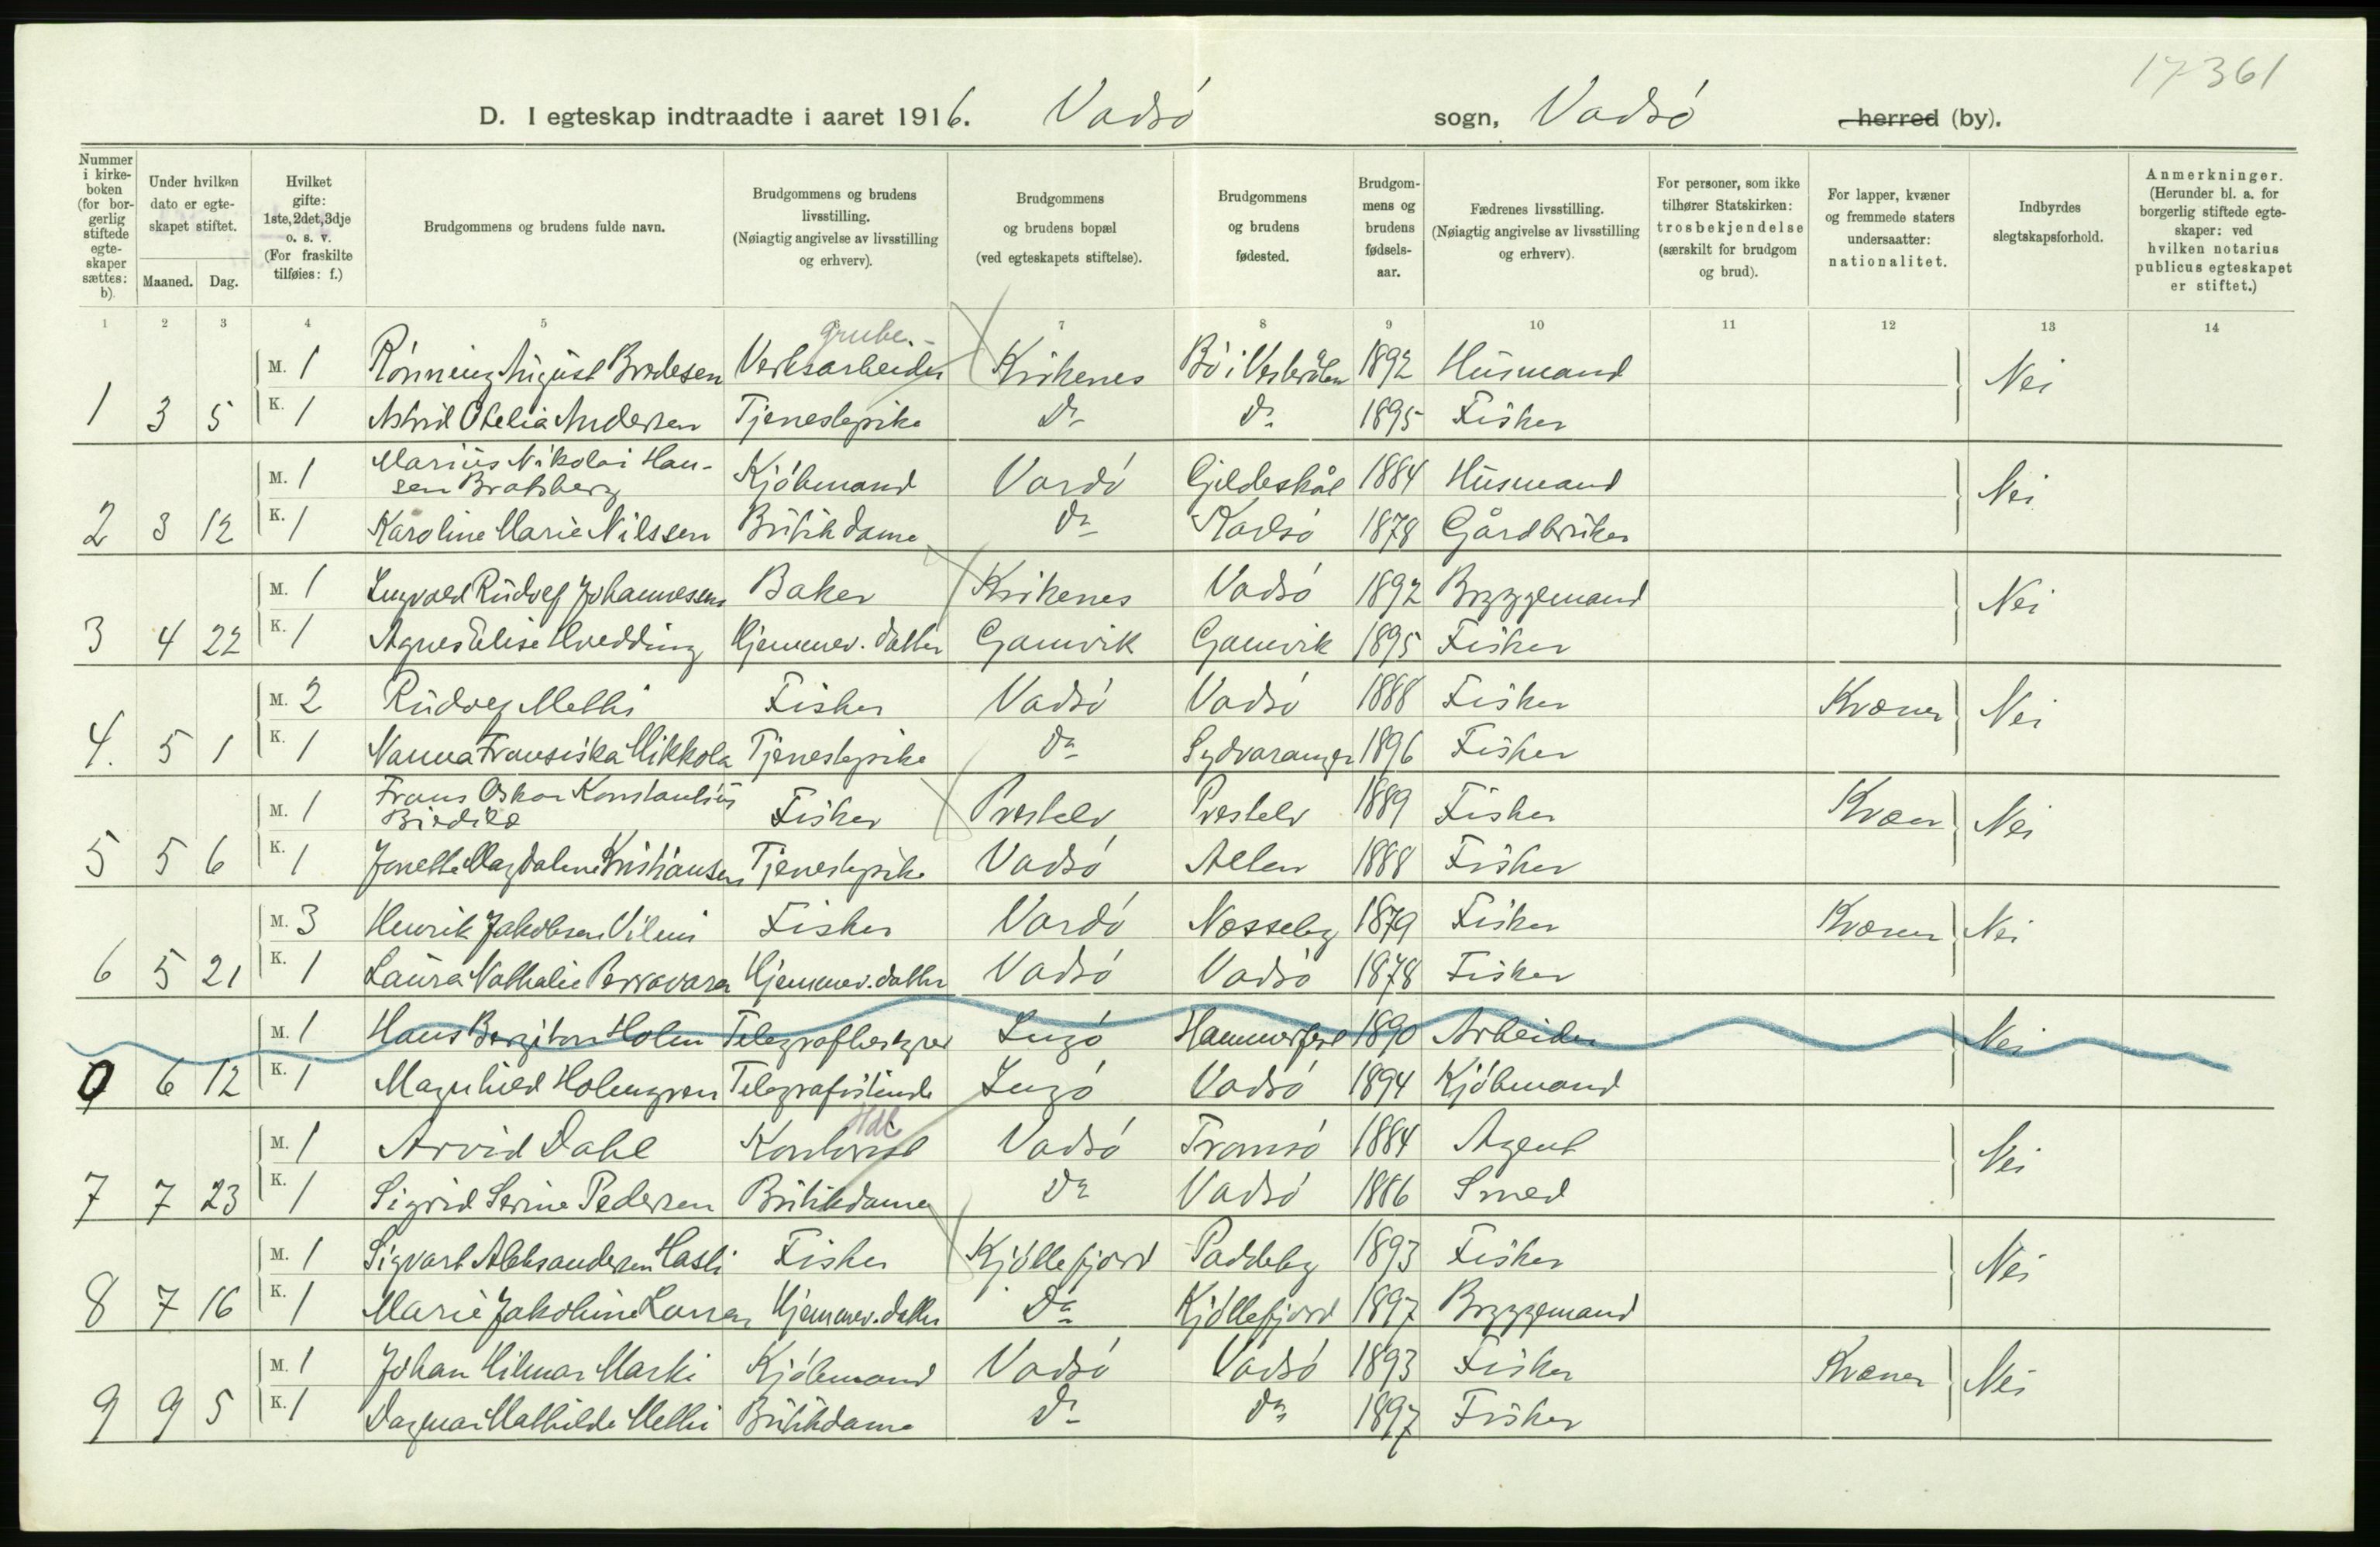 17361
D. I egteskap indtraadte i aaret 1916. Vadsö sogn, Vadsö herred (by).
Nummer i kirkeboken (for borgerlig stiftede egteskaper sættes: b).
Under hvilken dato er egteskapet stiftet.
Maaned. Dag.
Hvilket gifte: 1ste, 2det, 3dje o. s. v. (For fraskilte tilføies: f.)
Brudgommens og brudens fulde navn.
Brudgommens og brudens livsstilling. (Nøiagtig angivelse av livsstilling og erhverv).
Brudgommens og brudens bopæl (ved egteskapets stiftelse).
Brudgommens og brudens fødested.
Brudgommens og brudens fødselsaar.
Fædrenes livsstilling. (Nøiagtig angivelse av livsstilling og erhverv).
For personer, som ikke tilhører Statskirken: trosbekjendelse (særskilt for brudgom og brud).
For lapper, kvæner og fremmede staters undersaatter: nationalitet.
Indbyrdes slegtskapsforhold.
Anmerkninger. (Herunder bl. a. for borgerlig stiftede egteskaper: ved hvilken notarius publicus egteskapet er stiftet.)
1 2 3 4 5 7 8 9 10 11 12 13 14
grube.-
M. 1 Rönning August Brodesen Verksarbeider Kirkenes Bö i Vesterålen 1892 Husmand Nei
1 3 5 K. 1 Astrid Otelia Andersen Tjenestepike do do 1895 Fisker
M. 1 Marius Nikolai Hansen Bratsberg Kjöbmand Vardö Gildeskål 1884 Husmand Nei
2 3 12 K. 1 Karoline Marie Nilssen Butikdame do Kadsö 1878 Gårdbruker
M. 1 Ingvald Rudolf Johannessen Baker Kirkenes Vadsö 1892 Bryggemand Nei
3 4 22 K. 1 Agnes Elise Hvedding Hjemmev. datter Gamvik Gamvik 1895 Fisker
M. 2 Rudolf Methi Fisker Vadsö Vadsö 1888 Fisker Kvæner Nei
4. 5 1 K. 1 Nanna Fransiska Mikkola Tjenestepike do Sydvaranger 1896 Fisker
M. 1 Frans Oskar Konstantius Fisker Prestelv Prestelv 1889 Fisker Kvæn Nei
5 5 6 K. 1 Jenette Magdalene Kristiansen Tjenestepike Vadsö Alten 1888 Fisker
M. 3 Henrik Jakobsen Fisker Vardö Nesseby 1879 Fisker Kvæner Nei
6 5 21 K. 1 Laura Nathalie Perravara Hjemmev. datter Vadsö Vadsö 1878 Fisker
M. 1 Hans Holm Telegrafbestyrer Ingö Hammerfest 1890 Arbeider Nei
0 6 12 K. 1 Magnhild Holmgren Telegrafistinde Ingö Vadsö 1894 Kjöbmand
Hdl
M. 1 Arvid Dahl Kontorist Vadsö Tromsö 1884 Agent Nei
7 7 23 K. 1 Sigrid Serine Pedersen Butikdame do Vadsö 1886 Smed
M. 1 Sigvart Aleksandersen Hasli Fisker Kjöllefjord Paddeby 1893 Fisker Nei
8 7 16 K. 1 Marie Jakobine Larsen Hjemmev. datter Do Kjöllefjord 1897 Bryggemand
M. 1 Johan Hilmar Marki Kjöbmand Vadsö Vadsö 1893 Fisker Kvæner Nei
9 9 5 K. 1 Dagmar Mathilde Methi Butikdame do do 1897 Fisker